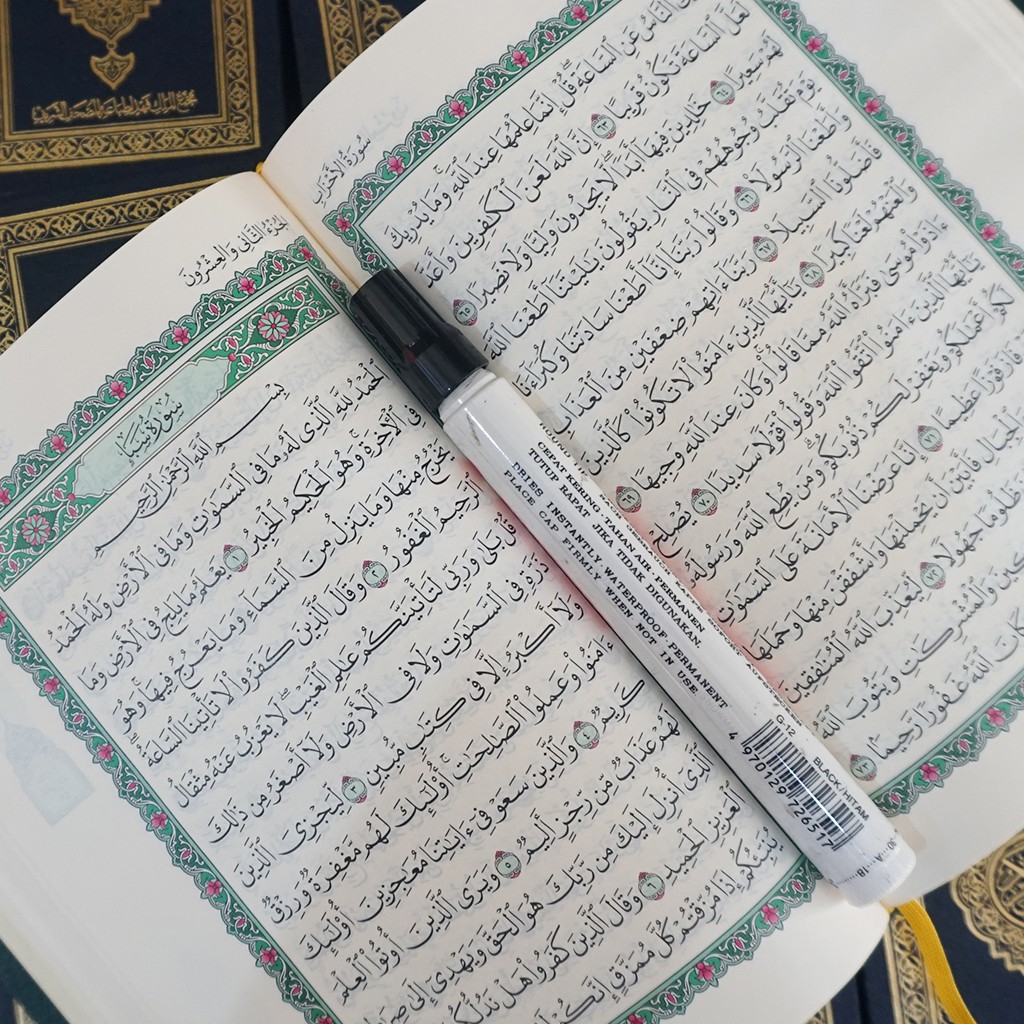 سُورَةُ الأَحْزَابِ
ٱلنَّاسُ عَنِ ٱلسَّاعَةِ قُلْ إِنَّمَا عِلْمُهَا عِندَ ٱللَّهِ وَمَا يُدْرِيكَ
لَعَلَّ ٱلسَّاعَةَ تَكُونُ قَرِيبًا ٦٣ إِنَّ ٱللَّهَ لَعَنَ ٱلْكَٰفِرِينَ وَأَعَدَّ
لَهُمْ سَعِيرًا ٦٤ خَٰلِدِينَ فِيهَآ أَبَدًا لَّا يَجِدُونَ وَلِيًّا وَلَا نَصِيرًا ٦٥
يَوْمَ تُقَلَّبُ وُجُوهُهُمْ فِى ٱلنَّارِ يَقُولُونَ يَٰلَيْتَنَآ أَطَعْنَا ٱللَّهَ
وَأَطَعْنَا ٱلرَّسُولَا۠ ٦٦ وَقَالُوا۟ رَبَّنَآ إِنَّآ أَطَعْنَا سَادَتَنَا وَكُبَرَآءَنَا
فَأَضَلُّونَا ٱلسَّبِيلَا۠ ٦٧ رَبَّنَآ ءَاتِهِمْ ضِعْفَيْنِ مِنَ ٱلْعَذَابِ
وَٱلْعَنْهُمْ لَعْنًا كَبِيرًا ٦٨ يَٰٓأَيُّهَا ٱلَّذِينَ ءَامَنُوا۟ لَا تَكُونُوا۟ كَٱلَّذِينَ
ءَاذَوْا۟ مُوسَىٰ فَبَرَّأَهُ ٱللَّهُ مِمَّا قَالُوا۟ وَكَانَ عِندَ ٱللَّهِ وَجِيهًا ٦٩
يَٰٓأَيُّهَا ٱلَّذِينَ ءَامَنُوا۟ ٱتَّقُوا۟ ٱللَّهَ وَقُولُوا۟ قَوْلًا سَدِيدًا ٧٠ يُصْلِحْ
لَكُمْ أَعْمَٰلَكُمْ وَيَغْفِرْ لَكُمْ ذُنُوبَكُمْ وَمَن يُطِعِ ٱللَّهَ وَرَسُولَهُۥ
فَازَ فَوْزًا عَظِيمًا ٧١ إِنَّا عَرَضْنَا ٱلْأَمَانَةَ عَلَى ٱلسَّمَٰوَٰتِ
وَٱلْجِبَالِ فَأَبَيْنَ أَن يَحْمِلْنَهَا وَأَشْفَقْنَ مِنْهَا وَحَمَلَهَا
ظَلُومًا جَهُولًا ٧٢ لِّيُعَذِّبَ ٱللَّهُ ٱلْمُنَٰفِقِينَ
وَٱلْمُشْرِكَٰتِ وَيَتُوبَ ٱللَّهُ
كَانَ ٱللَّهُ غَفُورًا رَّحِيمًۢا ٧٣
الجُزْءُ الثَّانِي وَالعِشْرُونَ
سُورَةُ سَبَإٍ
بِسْمِ ٱللَّهِ ٱلرَّحْمَٰنِ ٱلرَّحِيمِ
ٱلْحَمْدُ لِلَّهِ ٱلَّذِى لَهُۥ مَا فِى ٱلسَّمَٰوَٰتِ وَمَا فِى ٱلْأَرْضِ وَلَهُ ٱلْحَمْدُ
فِى ٱلْءَاخِرَةِ وَهُوَ ٱلْحَكِيمُ ٱلْخَبِيرُ ١ يَعْلَمُ مَا يَلِجُ فِى ٱلْأَرْضِ وَمَا
يَخْرُجُ مِنْهَا وَمَا يَنزِلُ مِنَ ٱلسَّمَآءِ وَمَا يَعْرُجُ فِيهَا وَهُوَ
ٱلرَّحِيمُ ٱلْغَفُورُ ٢ وَقَالَ ٱلَّذِينَ كَفَرُوا۟ لَا تَأْتِينَا ٱلسَّاعَةُ
قُلْ بَلَىٰ وَرَبِّى لَتَأْتِيَنَّكُمْ عَٰلِمِ ٱلْغَيْبِ لَا يَعْزُبُ عَنْهُ مِثْقَالُ
ذَرَّةٍ فِى ٱلسَّمَٰوَٰتِ وَلَا فِى ٱلْأَرْضِ وَلَآ أَصْغَرُ مِن ذَٰلِكَ
وَلَآ أَكْبَرُ إِلَّا فِى كِتَٰبٍ مُّبِينٍ ٣ لِّيَجْزِىَ ٱلَّذِينَ
ءَامَنُوا۟ وَعَمِلُوا۟ ٱلصَّٰلِحَٰتِ أُو۟لَٰٓئِكَ لَهُم مَّغْفِرَةٌ وَرِزْقٌ
كَرِيمٌ ٤ وَٱلَّذِينَ سَعَوْ فِىٓ ءَايَٰتِنَا مُعَٰجِزِينَ أُو۟لَٰٓئِكَ
لَهُمْ عَذَابٌ مِّن رِّجْزٍ أَلِيمٌ ٥ وَيَرَى ٱلَّذِينَ أُوتُوا۟ ٱلْعِلْمَ
ٱلَّذِىٓ أُنزِلَ إِلَيْكَ مِن رَّبِّكَ هُوَ ٱلْحَقَّ وَيَهْدِىٓ إِلَىٰ
ٱلْعَزِيزِ ٱلْحَمِيدِ ٦ وَقَالَ ٱلَّذِينَ كَفَرُوا۟ هَلْ نَدُلُّكُمْ
يُنَبِّئُكُمْ إِذَا مُزِّقْتُمْ كُلَّ مُمَزَّقٍ إِنَّكُمْ
CEPAT KERING. TAHAN AIR. PERMANEN
TUTUP RAPAT JIKA TIDAK DIGUNAKAN
DRIES INSTANTLY WATERPROOF PERMANENT
PLACE CAP FIRMLY WHEN NOT IN USE
G-12
BLACK/HITAM
4 970129 726517